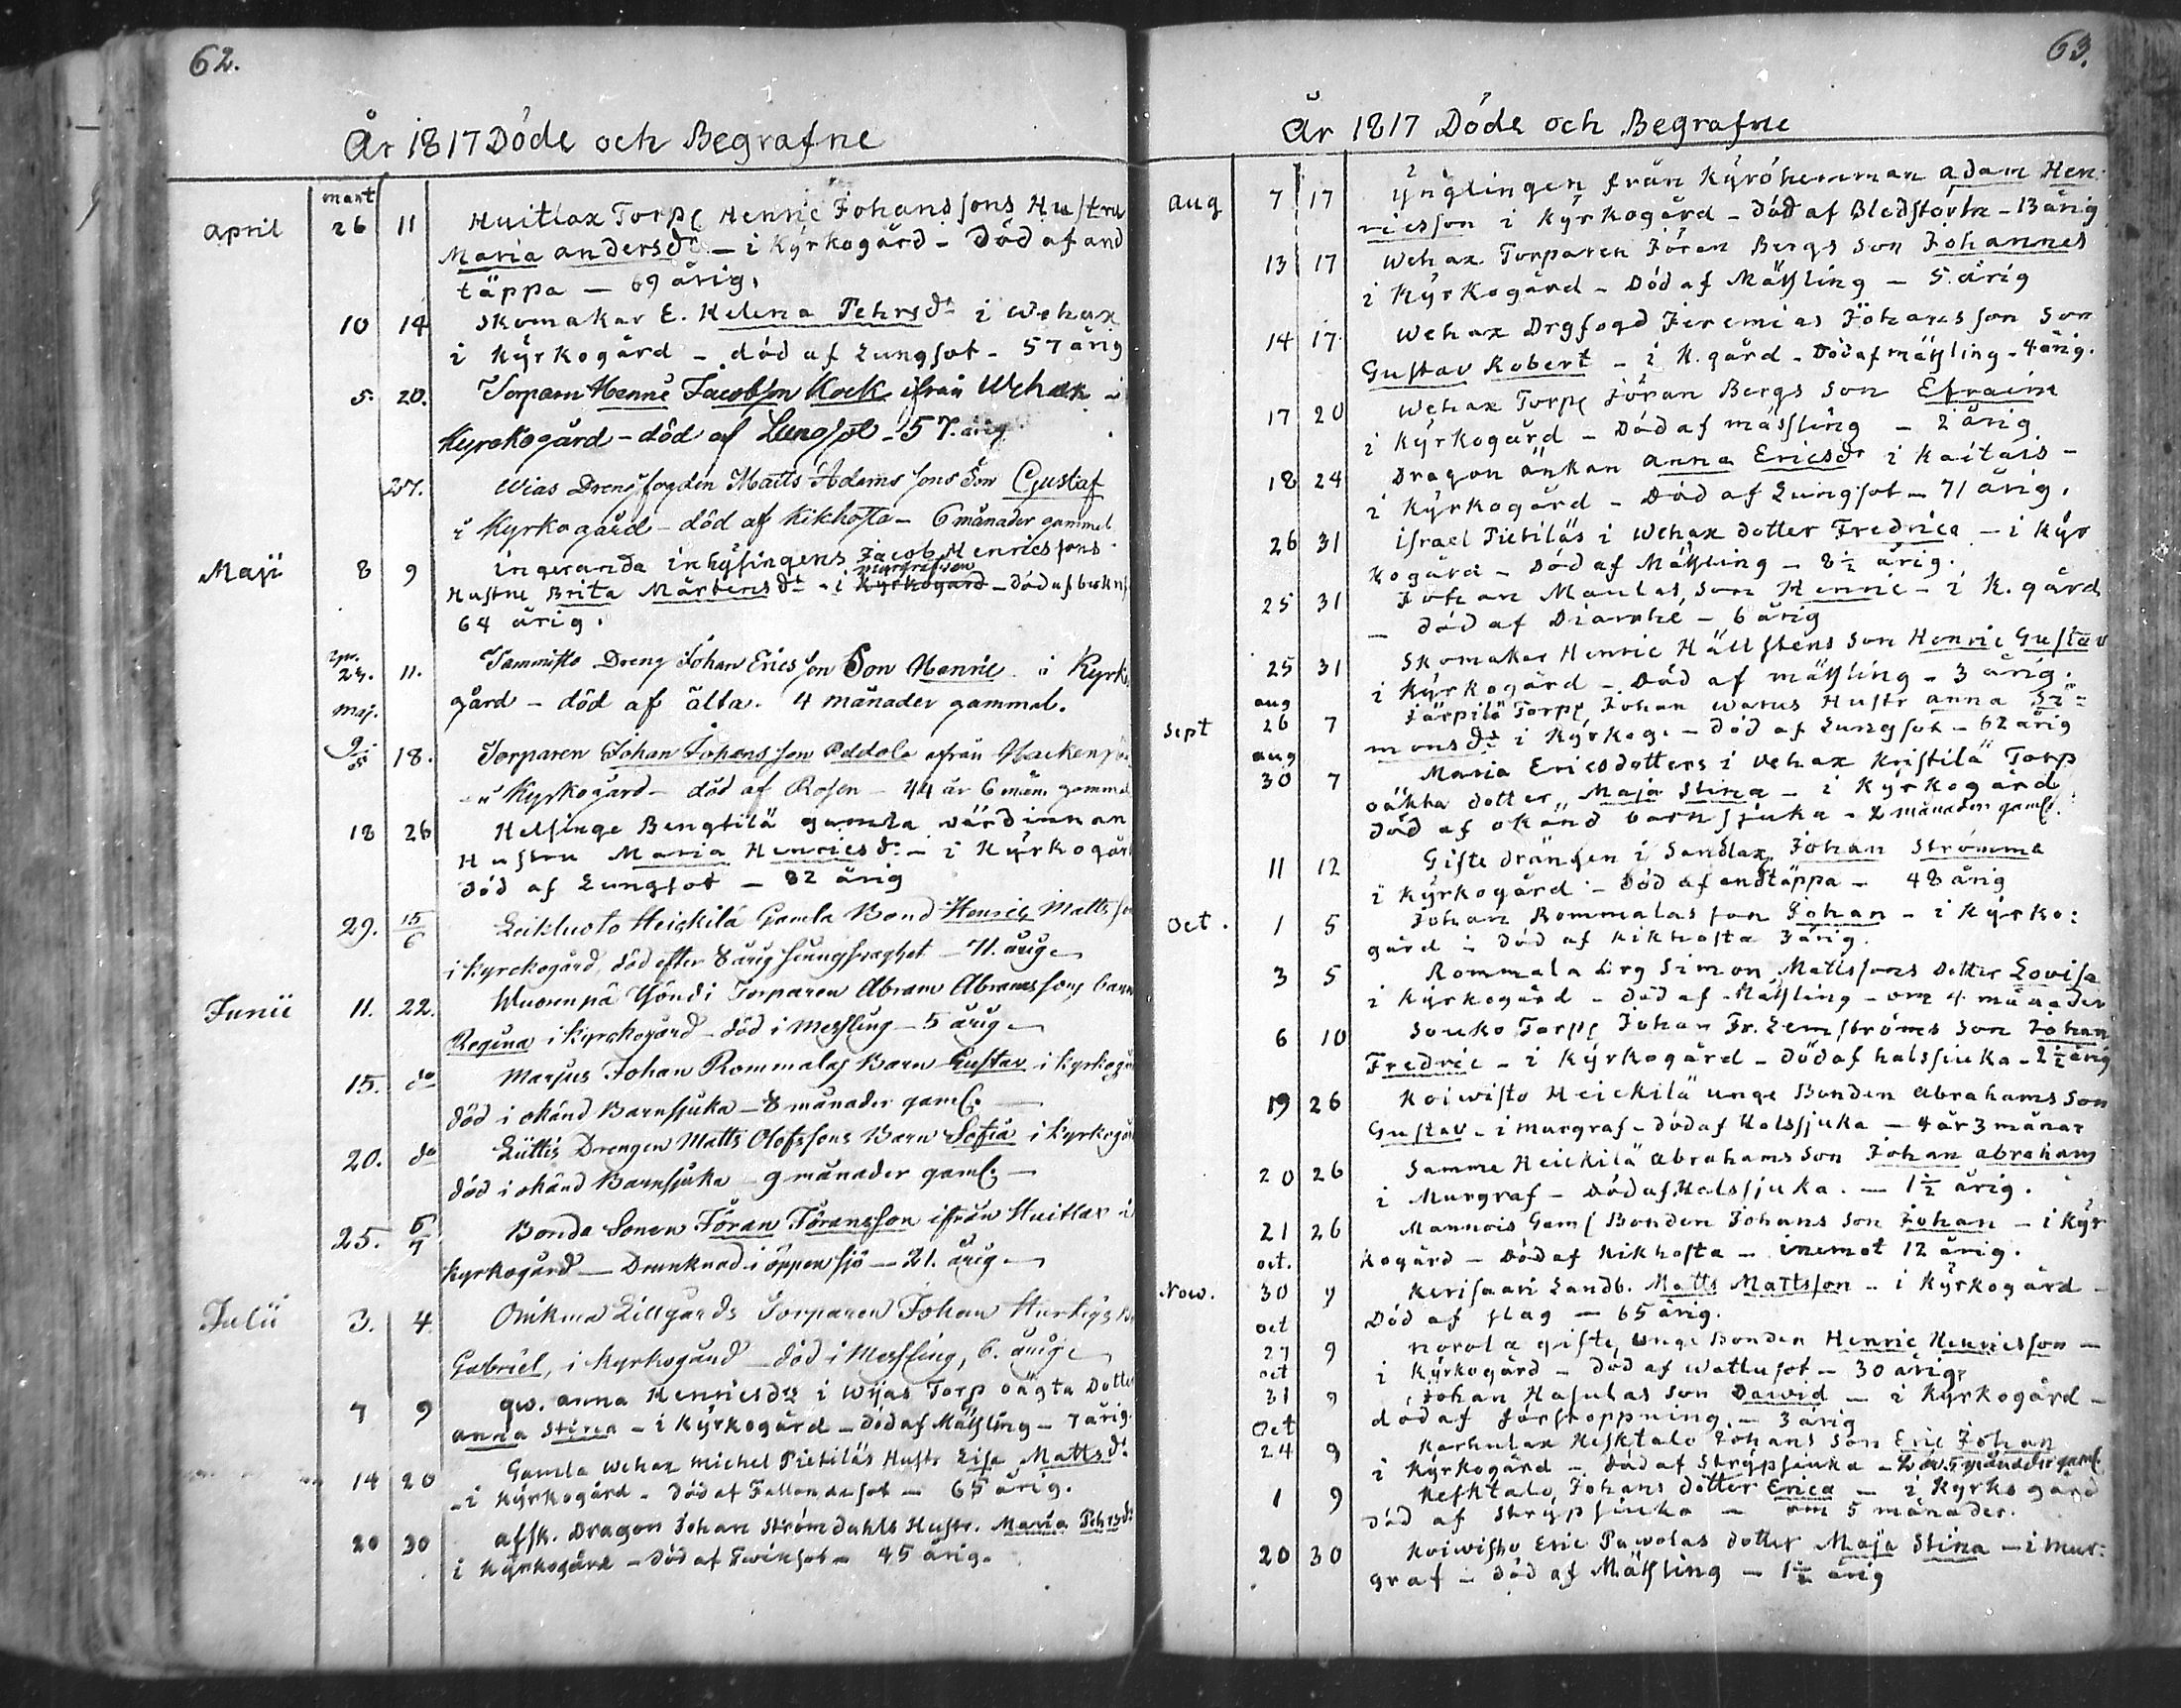 62.
År 1817 Döde och Begrafne
mart
april 26 11 Huitlax Torp Henric Johanssons Hustru
Maria andersdr – i Kyrkogård – Död af and
täppa – 69 årig.
10 14 Skomakar E. Helena Pehrsdr i Wehax
i Kyrkogård – död af Lungsot – 57 årig
5. 20. Torparn Henric Jacobson Kock ifrån Wehax i
Kyrkogård – död af Lungsot – 57. årig
27. Wias Drengfogden Matts Adamssons Son Gustaf
i Kyrkogård – död af Kikhosta – 6 månader gammel
Maji 8 9 ingeranda inhysingens Jacob Henricssons
Hustru Brita Mårtensdr – i Kyrkogård – död af
64 årig.
11. Tammisto Dreng Johan Ericsson Son Henric. i Kyrko
gård – död af älta. 4 månader gammal.
maj.
18. Torparen Johan Johansson Oddola ifrån
i Kyrkogård – död af Rosen – 44 år 6 mån. gammal
18 26 Helsinge Bengtilä gamla värdinnan
Hustru Maria Henricsdr – i Kyrkogård
död af Lungsot – 82 årig
29. 15/6 Heickilä Gamla Bond Henric Matts
i kyrckogård, död efter 8 årig – 71. årig –
Junii 11. 22. Torparen Abram Abramssons barn
Regina i kyrckogård – död i Messling – 5 årig –
15. do Marsus Johan Rommalas Barn Gustav i kyrkogår
död i okänd Barnsjuka – 8 månader gaml. –
20. do Lüttis Drengen Matts Olofssons Barn Sofia i kyrkogår
död i okänd Barnsjuka – 9 månader gaml. –
25. 6/7 Bonda Sonen Jöran Jöransson ifrån Huitlax i
kyrkogård – Drunknad i öppen sjö – 21. årig –
Julii 3. 4. Lillgårds Torparen Johan
Gabriel, i kyrkogård – död i Messling, 6. årig –
7 9 qw. anna Henricsdrs i Wijas Torp oägta Dotter
anna Stina – i Kyrkogård – död af Mässling – 7 årig.
14 20 Gamla Wehax Michel Pietiläs Hustr Lisa Mattsdr
– i Kyrkogård – död af Fallandesot – 65 årig.
20 30 afsk. Dragon Johan Strömdahls Hustr. Maria Pehrsdr
i Kyrkogård – död af Twinsot – 45 årig.
63.
År 1817 Döde och Begrafne
aug 7 17 ynglingen från Kyrö adam Hen
ricsson i Kyrkogård – död af Blodstörtn – 13 årig
13 17 Wehax Torparen Jöran Bergs Son Johannes
i Kyrkogård – Död af Mässling – 5 årig
14 17. Wehax Drgfogd Jeremias Johansson Son
Gustav Robert – i K.gård – Död af mässling – 4 årig.
17 20 Wehax Torp Jöran Bergs Son Efraim
i Kyrkogård – Död af mässling – 2 årig
18 24 Dragon änkan anna Ericsdr i Kaitais –
i Kyrkogård – Död af Lungsot – 71 årig.
26 31 israel Pietiläs i Wehax dotter Fredrica – i Kyr
kogård – död af Mässling – 8 1/2 årig.
25 31 Johan Maulas, Son Henric – i K. gård
– död af Diarrhé – 6 årig
25 31 Skomakar Henric Hällstens Son Henric Gustav
i Kyrkogård – Död af mässling – 3 årig.
aug
Sept 26 7 Järpilä Torp Johan warus Hustr anna Si=
monsdr i Kyrkog. – död af Lungsot – 62 årig
aug
30 7 Maria Ericsdotters i Wehax Kristilä Torp
oäkta dotter Maja Stina – i Kyrkogård
död af okänd barnsjuka – 2 månader gaml.
11 12 Gifte drängen i Sandlax Johan Strömma
i Kyrkogård – Död af andtäppa – 48 årig
Oct. 1 5 Johan Rommalas son Johan – i Kyrko:
gård – död af kikhosta 3 årig.
3 5 Rommala drg Simon Mattssons dotter Lovisa
i Kyrkogård – död af Mässling – om 4 månader
6 10 Souko Torp Johan Fr. Lemströms Son Johan
Fredric – i Kyrkogård – död af halssjuka – 2 1/2 årig
19 26 Koiwisto Heickilä unge Bonden abrahams Son
Gustav – i murgraf – död af Halssjuka – 4 år 3 månar
20 26 Samme Heickilä abrahams Son Johan abraham
i Murgraf – Död af Halssjuka. – 1 1/2 årig.
21 26 Mannois Gaml Bonden Johans Son Johan – i Kyr
kogård – Död af Kikhosta – inemot 12 årig.
oct.
Now. 30 9 Kerisaari Landb. Matts Mattsson – i Kyrkogård –
Död af slag – 65 årig.
oct
27 9 norola gifte, unge Bonden Henric Henricsson –
i Kyrkogård – död af Wattusot – 30 årig
oct
31 9 Johan Hasulas Son Dawid – i Kyrkogård –
död af förstoppning. – 3 årig
Oct
24 9 Karhulax Kesktalo Johans Son Eric Johan
i Kyrkogård – Död af Strypsiuka – 2 år 5 månader gaml.
1 9 Kesktalo, Johans dotter Erica – i Kyrkogård
Död af Strypsiuka – om 5 månader.
20 30 Koiwisto Eric Pawolas dotter Maja Stina – i Mur:
graf – död af Mässling – 1 1/2 årig